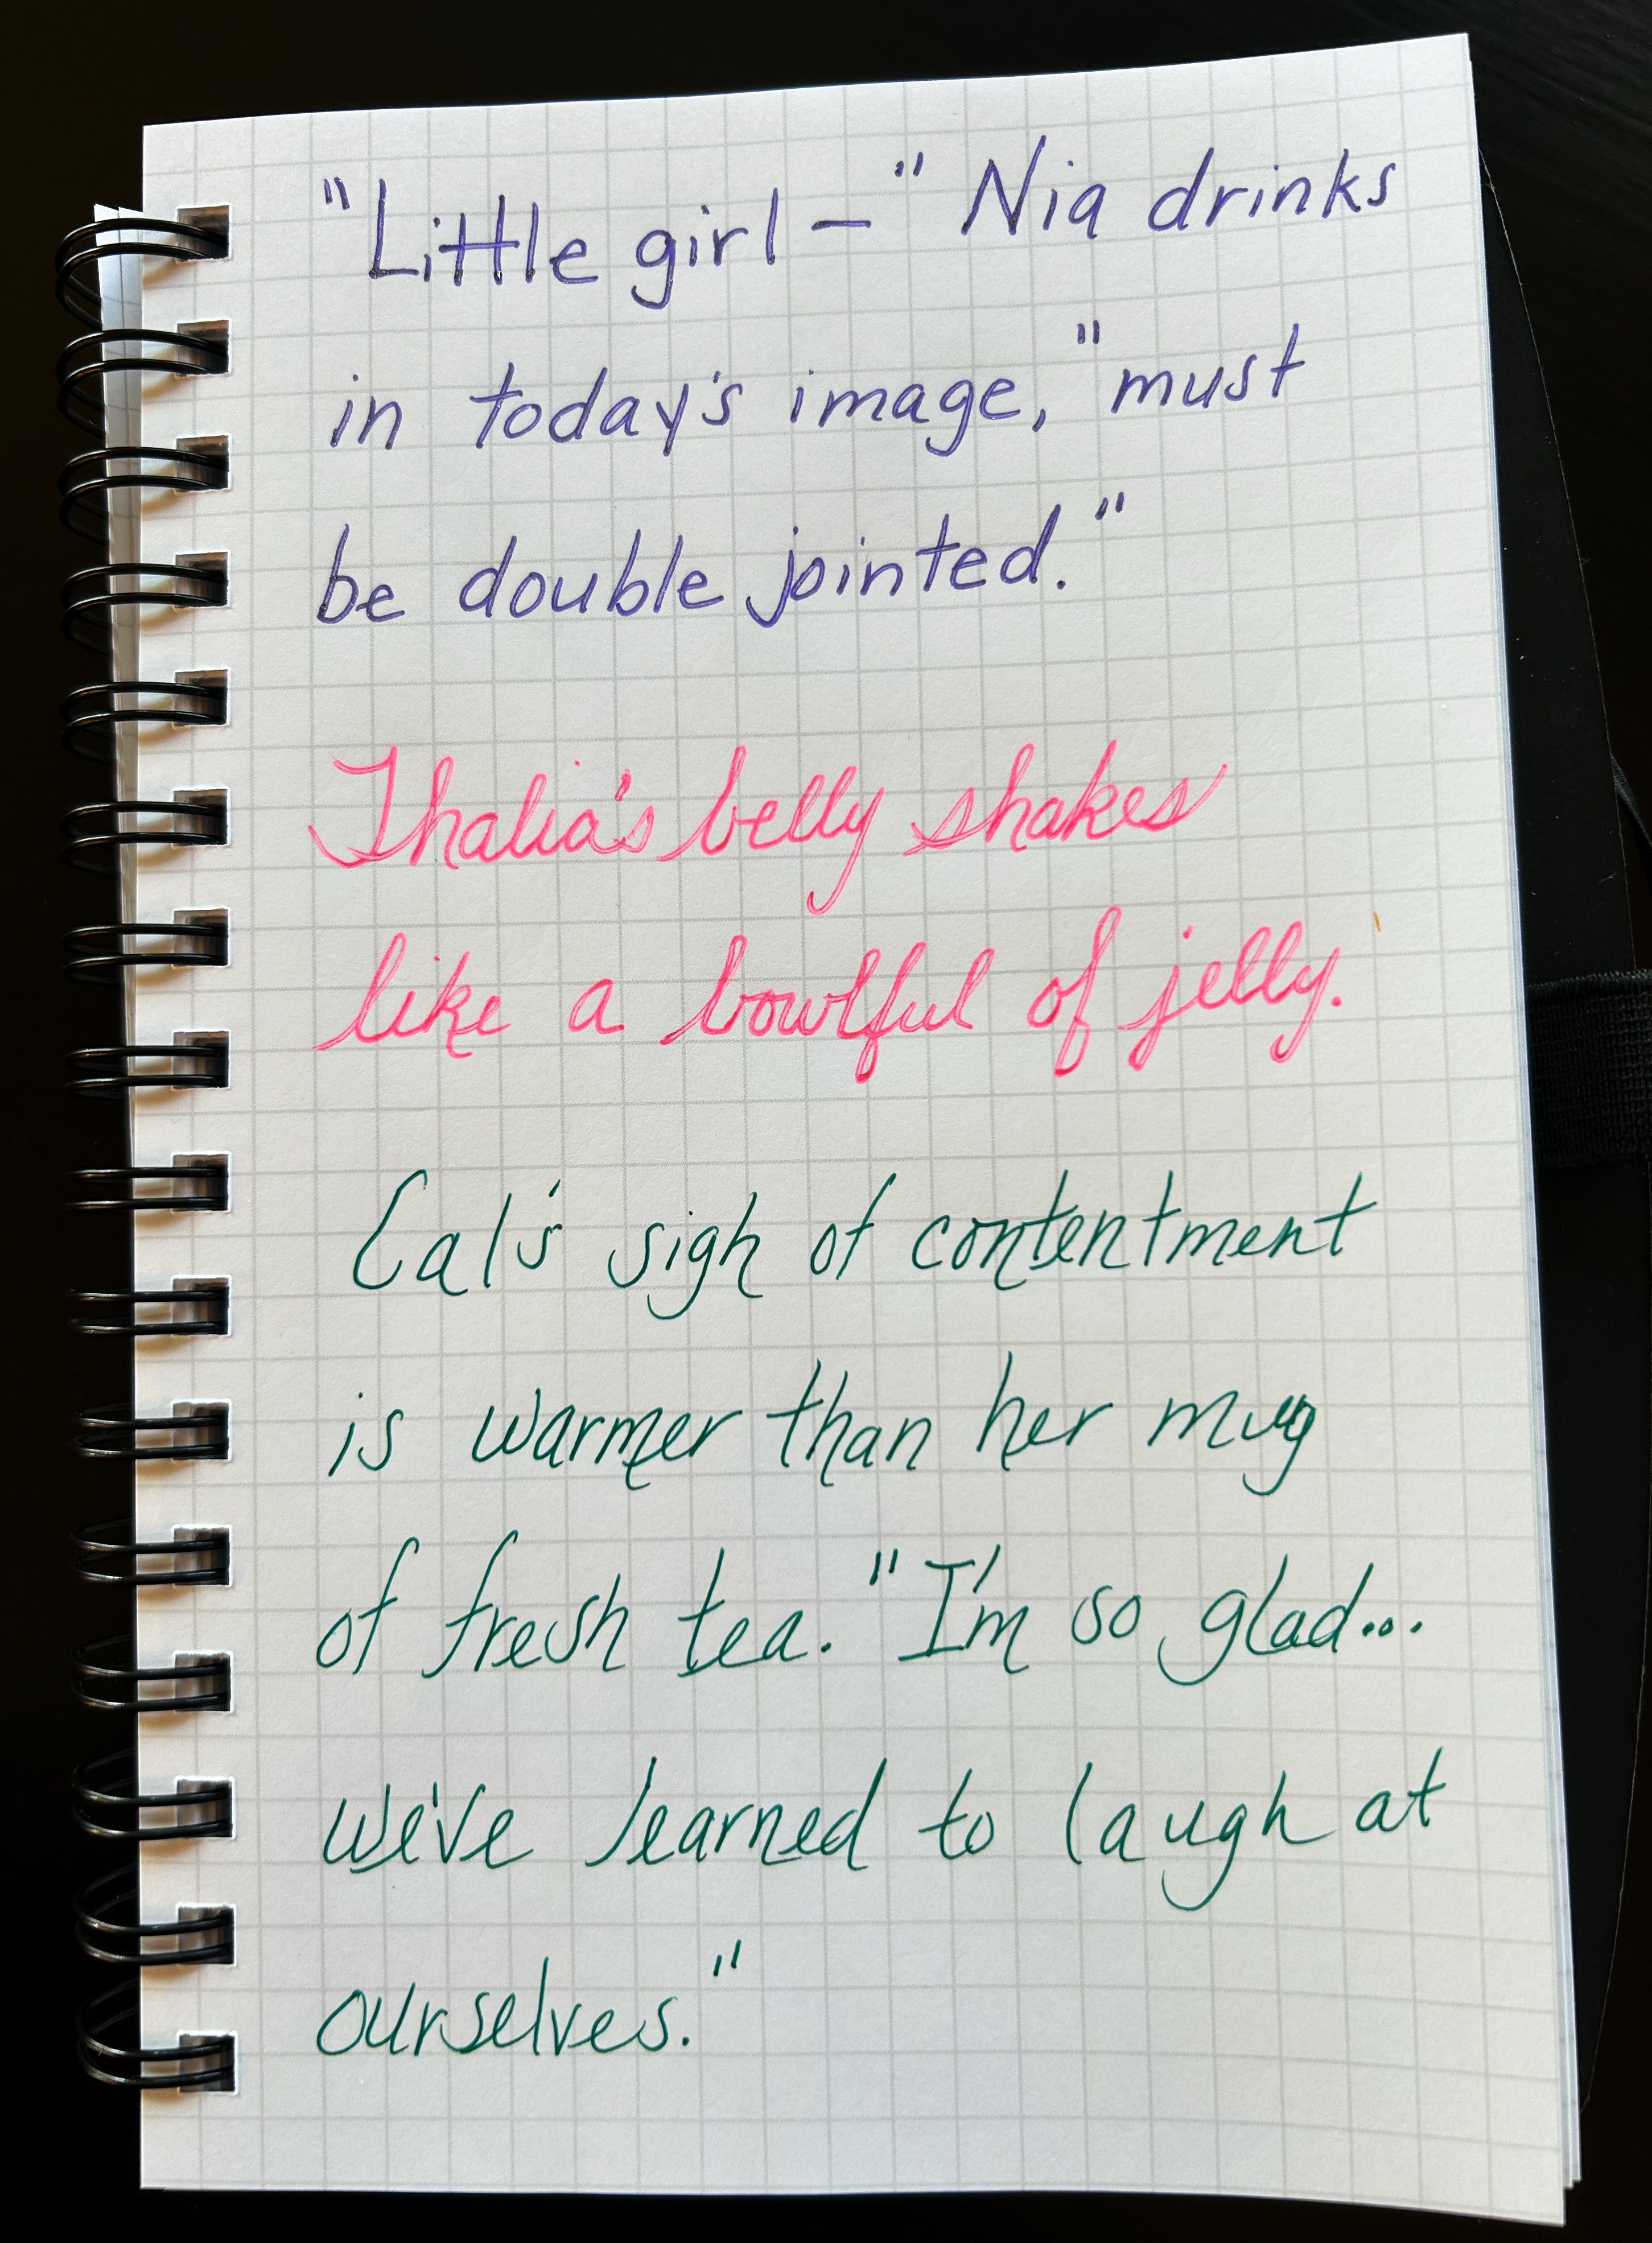 "Little girl — " Nia drinks
in today's image, "must
be double jointed."
Thalia's belly shakes
like a bowlful of jelly.
Cal's sigh of contentment
is warmer than her mug
of fresh tea. "I'm so glad...
we've learned to laugh at
ourselves."